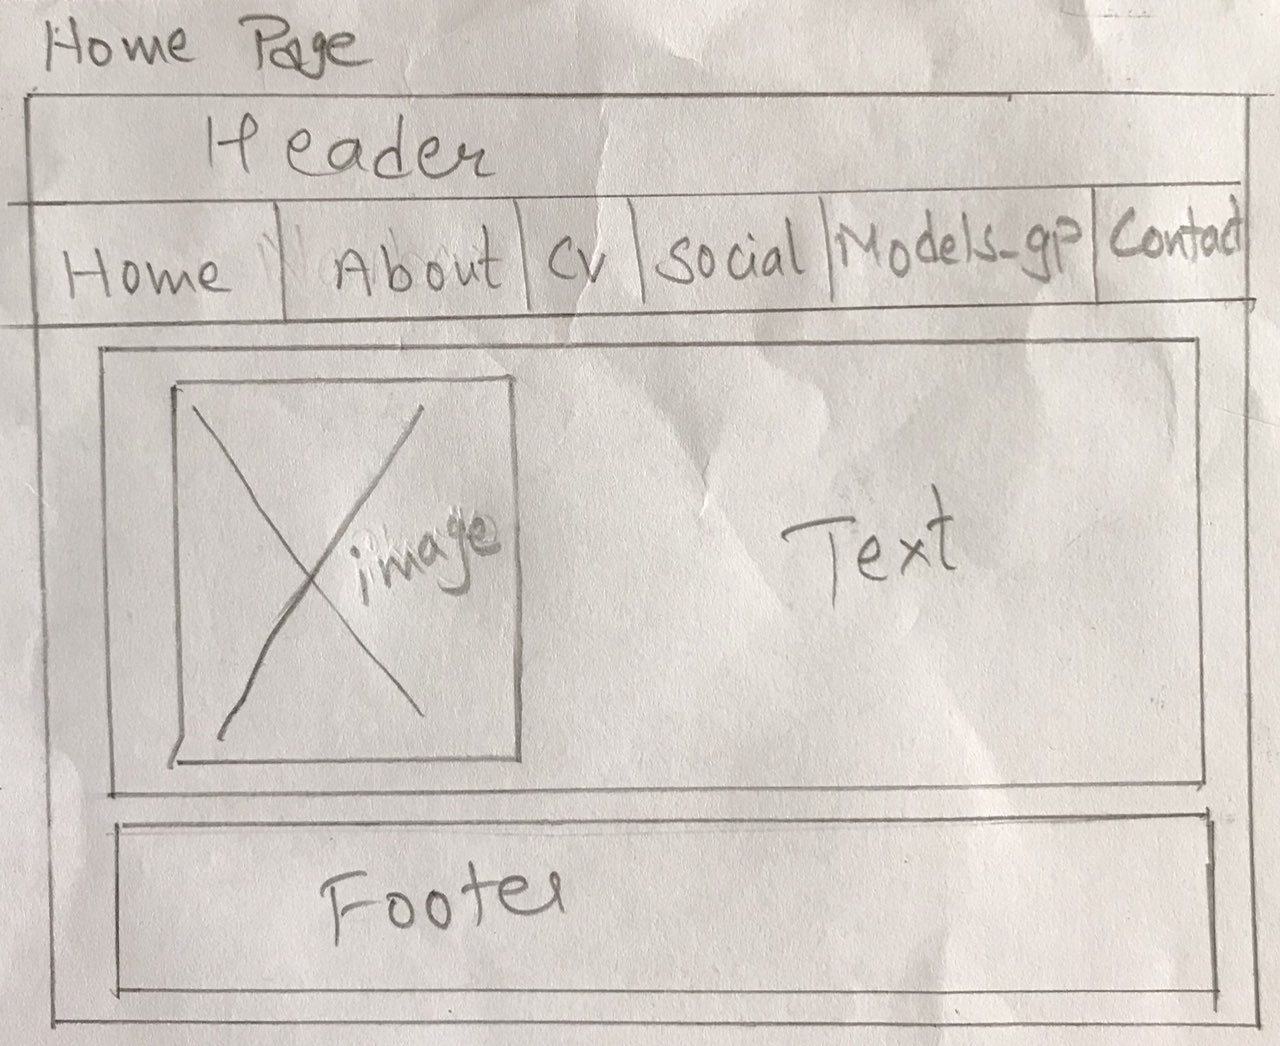 Home Page
Header
Home About CV Social Models-gp Contact
image
Text
Footer